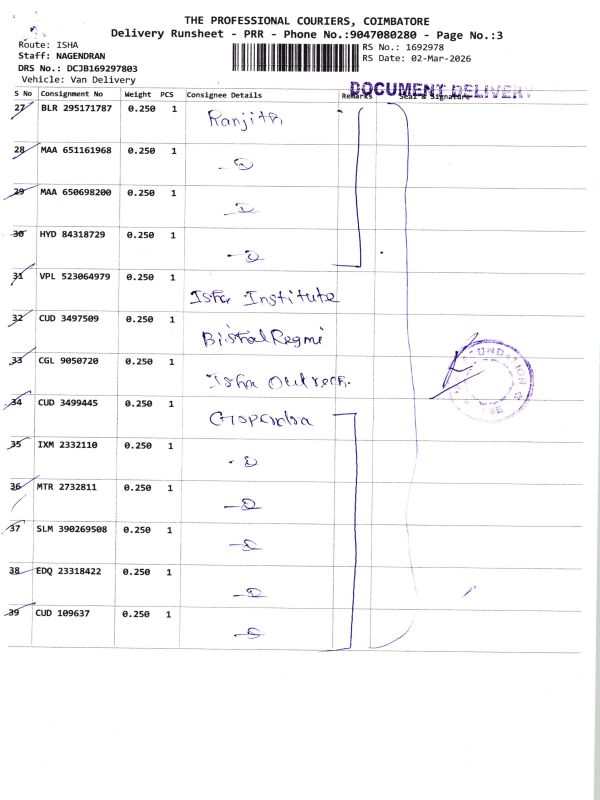 THE PROFESSIONAL COURIERS, COIMBATORE
Delivery Runsheet - PRR - Phone No.:9047080280 - Page No.:3
Route: ISHA
Staff: NAGENDRAN
DRS No.: DCJB169297803
Vehicle: Van Delivery
RS No.: 1692978
RS Date: 02-Mar-2026
DOCUMENT DELIVERY
S No Consignment No Weight PCS Consignee Details Remarks Seal & Signature
27 BLR 295171787 0.250 1 Ranjith
28 MAA 651161968 0.250 1
29 MAA 650698200 0.250 1
30 HYD 84318729 0.250 1
31 VPL 523064979 0.250 1 Isha Institute
32 CUD 3497509 0.250 1 Bishal Regmi
33 CGL 9050720 0.250 1 Isha
34 CUD 3499445 0.250 1
35 IXM 2332110 0.250 1
36 MTR 2732811 0.250 1
37 SLM 390269508 0.250 1
38 EDQ 23318422 0.250 1
39 CUD 109637 0.250 1